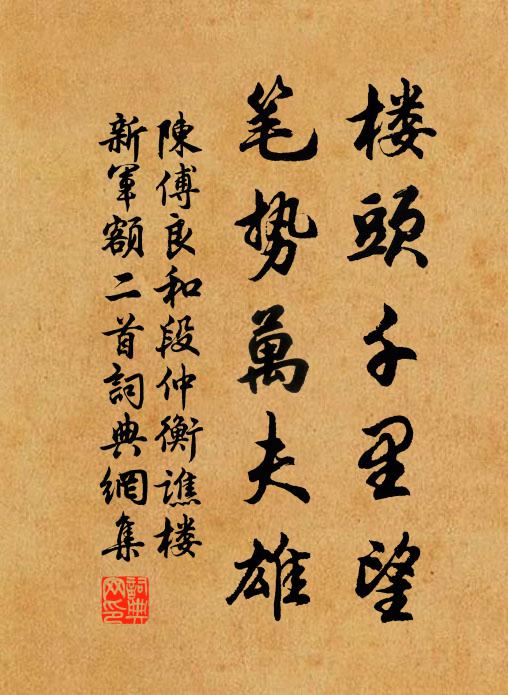 楼頭千里望
笔势萬夫雄
陳傅良和段仲衡譙楼
新軍額二首詞典網集
詞典网印